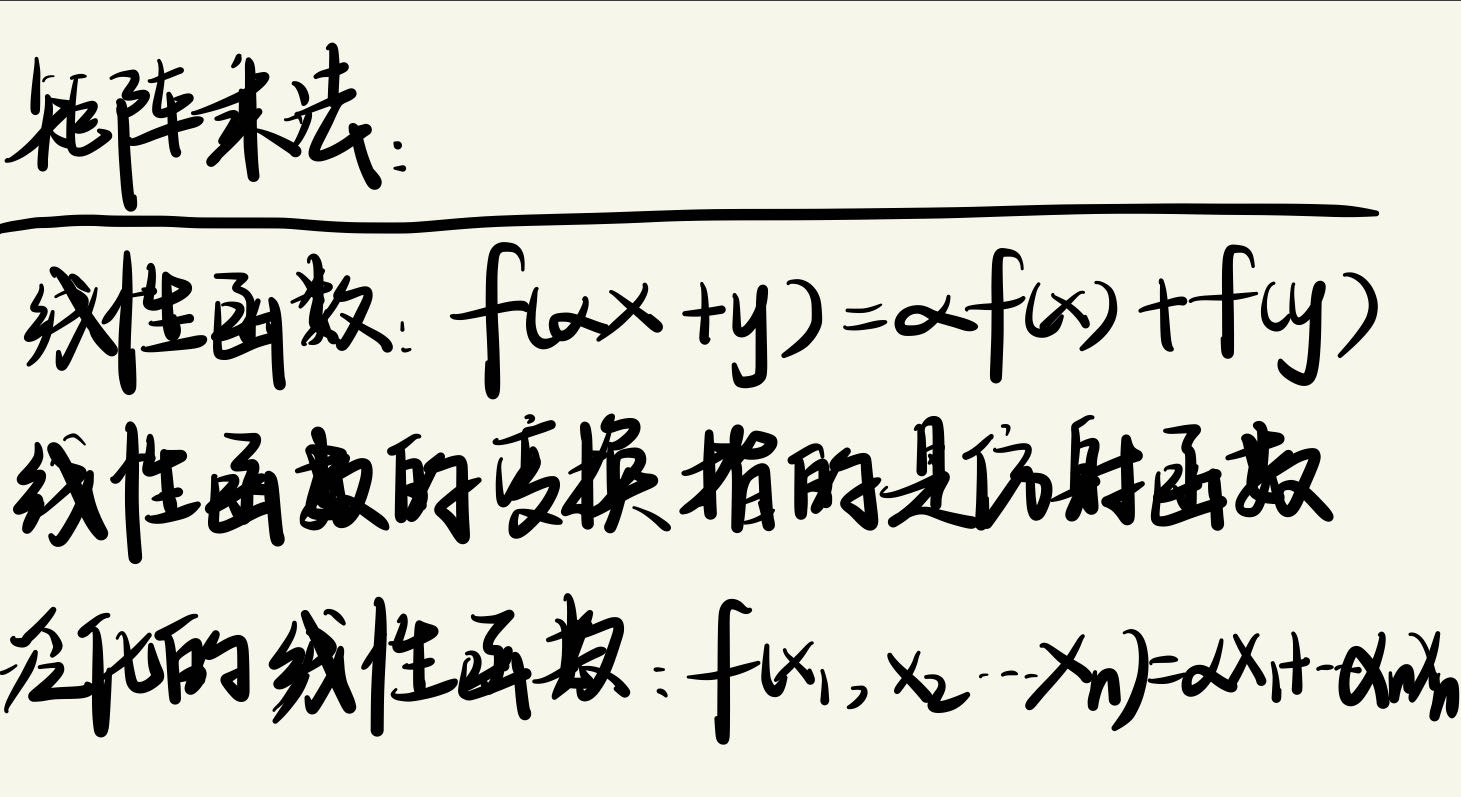 矩阵乘法:
线性函数: f(αx+y)=αf(x)+f(y)
线性函数的变换指的是仿射函数
泛化的线性函数: f(x₁,x₂...xₙ)=αx₁+--αₙxₙ